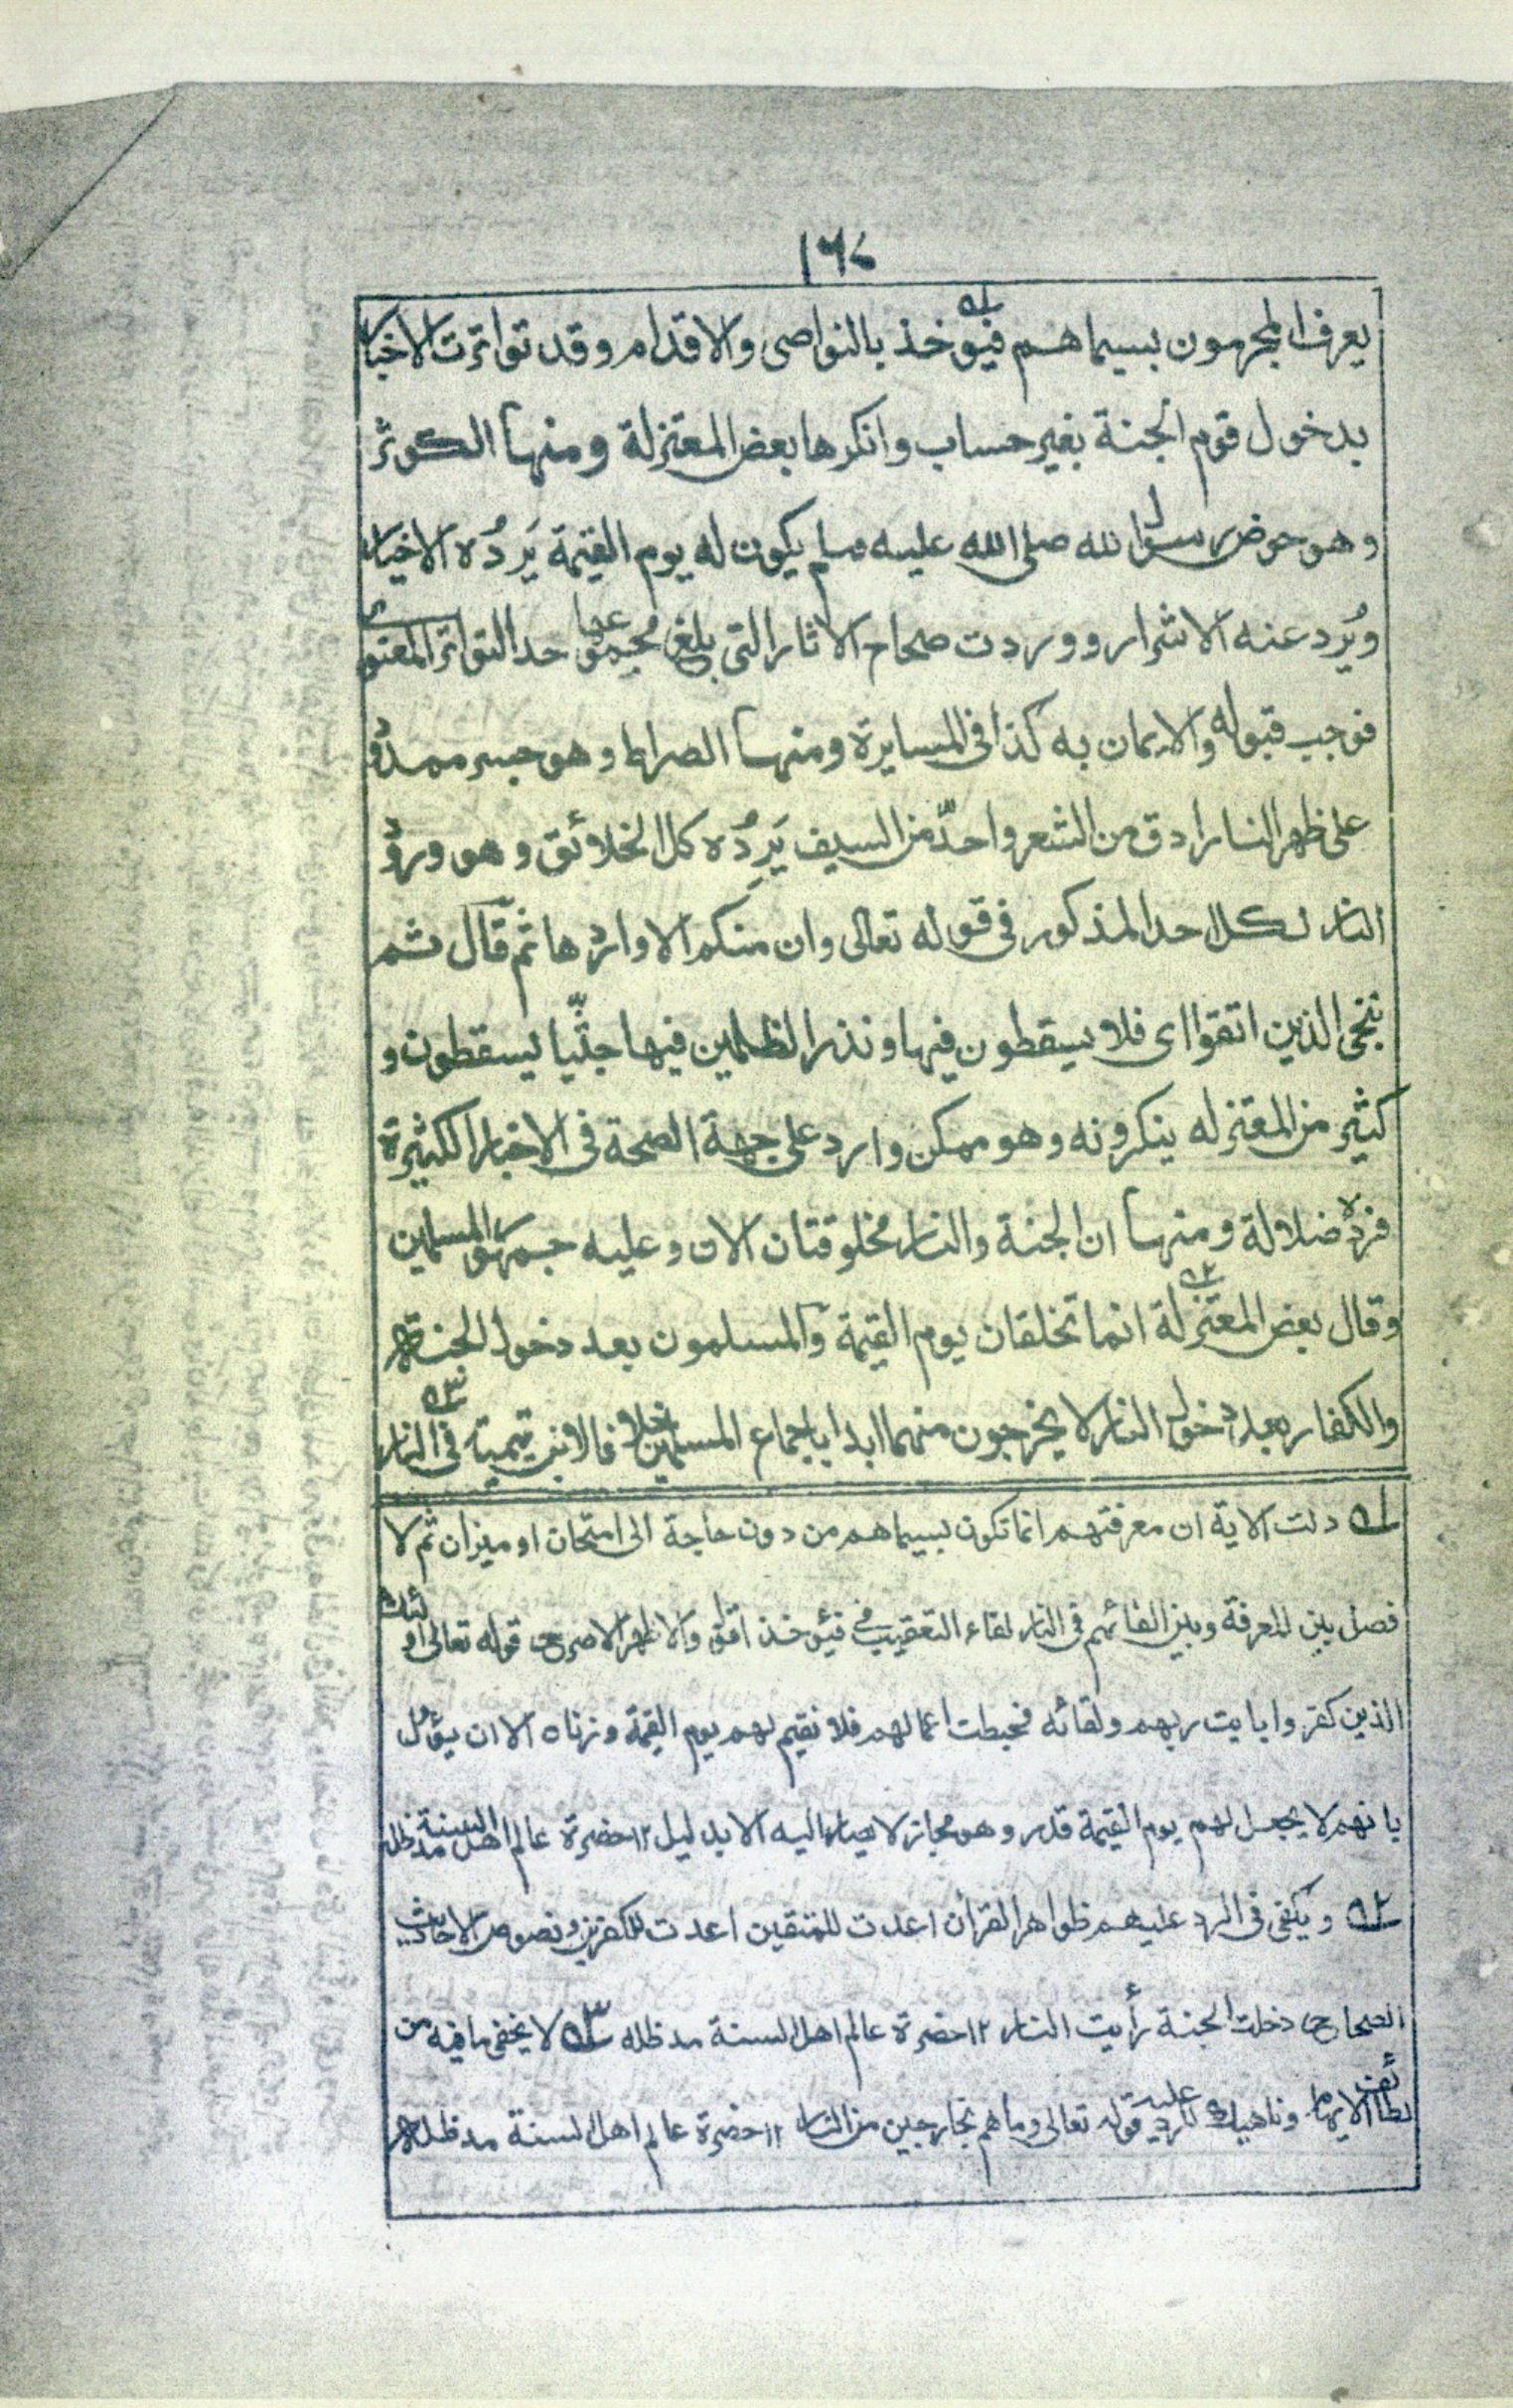 ١٦٧
يعرف المجرمون بسيماهم فيؤخذ بالنواصى والاقدام وقد تواترت الاخبار
بدخول قوم الجنة بغير حساب وانكرها بعض المعتزلة ومنها الكوثر
وهو حوض رسول الله صلى الله عليه وسلم يكون له يوم القيمة يَرِدُه الاخيار
ويُرد عنه الاشرار ووردت صحاح الاثار التى بلغ مجموعها حد التواتر المعنوى
فوجب قبوله والايمان به كذا فى المسايرة ومنها الصراط وهو جسر ممدود
على ظهر النار ادق من الشعر واحدّ من السيف يَرِدُه كل الخلائق وهو ورود
النار لكل احد المذكور فى قوله تعالى وان منكم الا واردها ثم قال ثم
ننجى الذين اتقوا اى فلا يسقطون فيها ونذر الظلمين فيها جثيّا يسقطون و
كثير من المعتزله ينكرونه وهو ممكن وارد على جهة الصحة فى الاخبار الكثيرة
فرده ضلالة ومنها ان الجنة والنار مخلوقتان الان وعليه جمهور المسلمين
وقال بعض المعتزلة انما تخلقان يوم القيمة والمسلمون بعد دخول الجنة
والكفار بعد دخول النار لا يخرجون منهما ابدا باجماع المسلمين خلافا لابن تيمية فى النار
١ه دلت الاية ان معرفتهم انما تكون بسيماهم من دون حاجة الى امتحان او ميزان ثم لا
فصل بين المعرفة وبين القائهم فى النار لفاء التعقيب فى فيؤخذ اقول والاظهر الاصرح قوله تعالى اولئك
الذين كفروا بايت ربهم ولقائه فحبطت اعمالهم فلا نقيم لهم يوم القيمة وزنا ه الا ان يؤل
بانهم لا يجعل لهم يوم القيمة قدر وهو مجاز لا يصار اليه الا بدليل ١٢ حضرة عالم اهل السنة مد ظله
٢ه ويكفى فى الرد عليهم ظواهر القرأن اعدت للمتقين اعدت للكفرين ونصوص الاحاديث
الصحاح دخلت الجنة رأيت النار ١٢ حضرة عالم اهل السنة مد ظله ٣ه لا يخفى ما فيه من
لطائف الايهام وناهيك للرد عليه قوله تعالى وما هم بخارجين من النار ١٢ حضرة عالم اهل السنة مد ظله